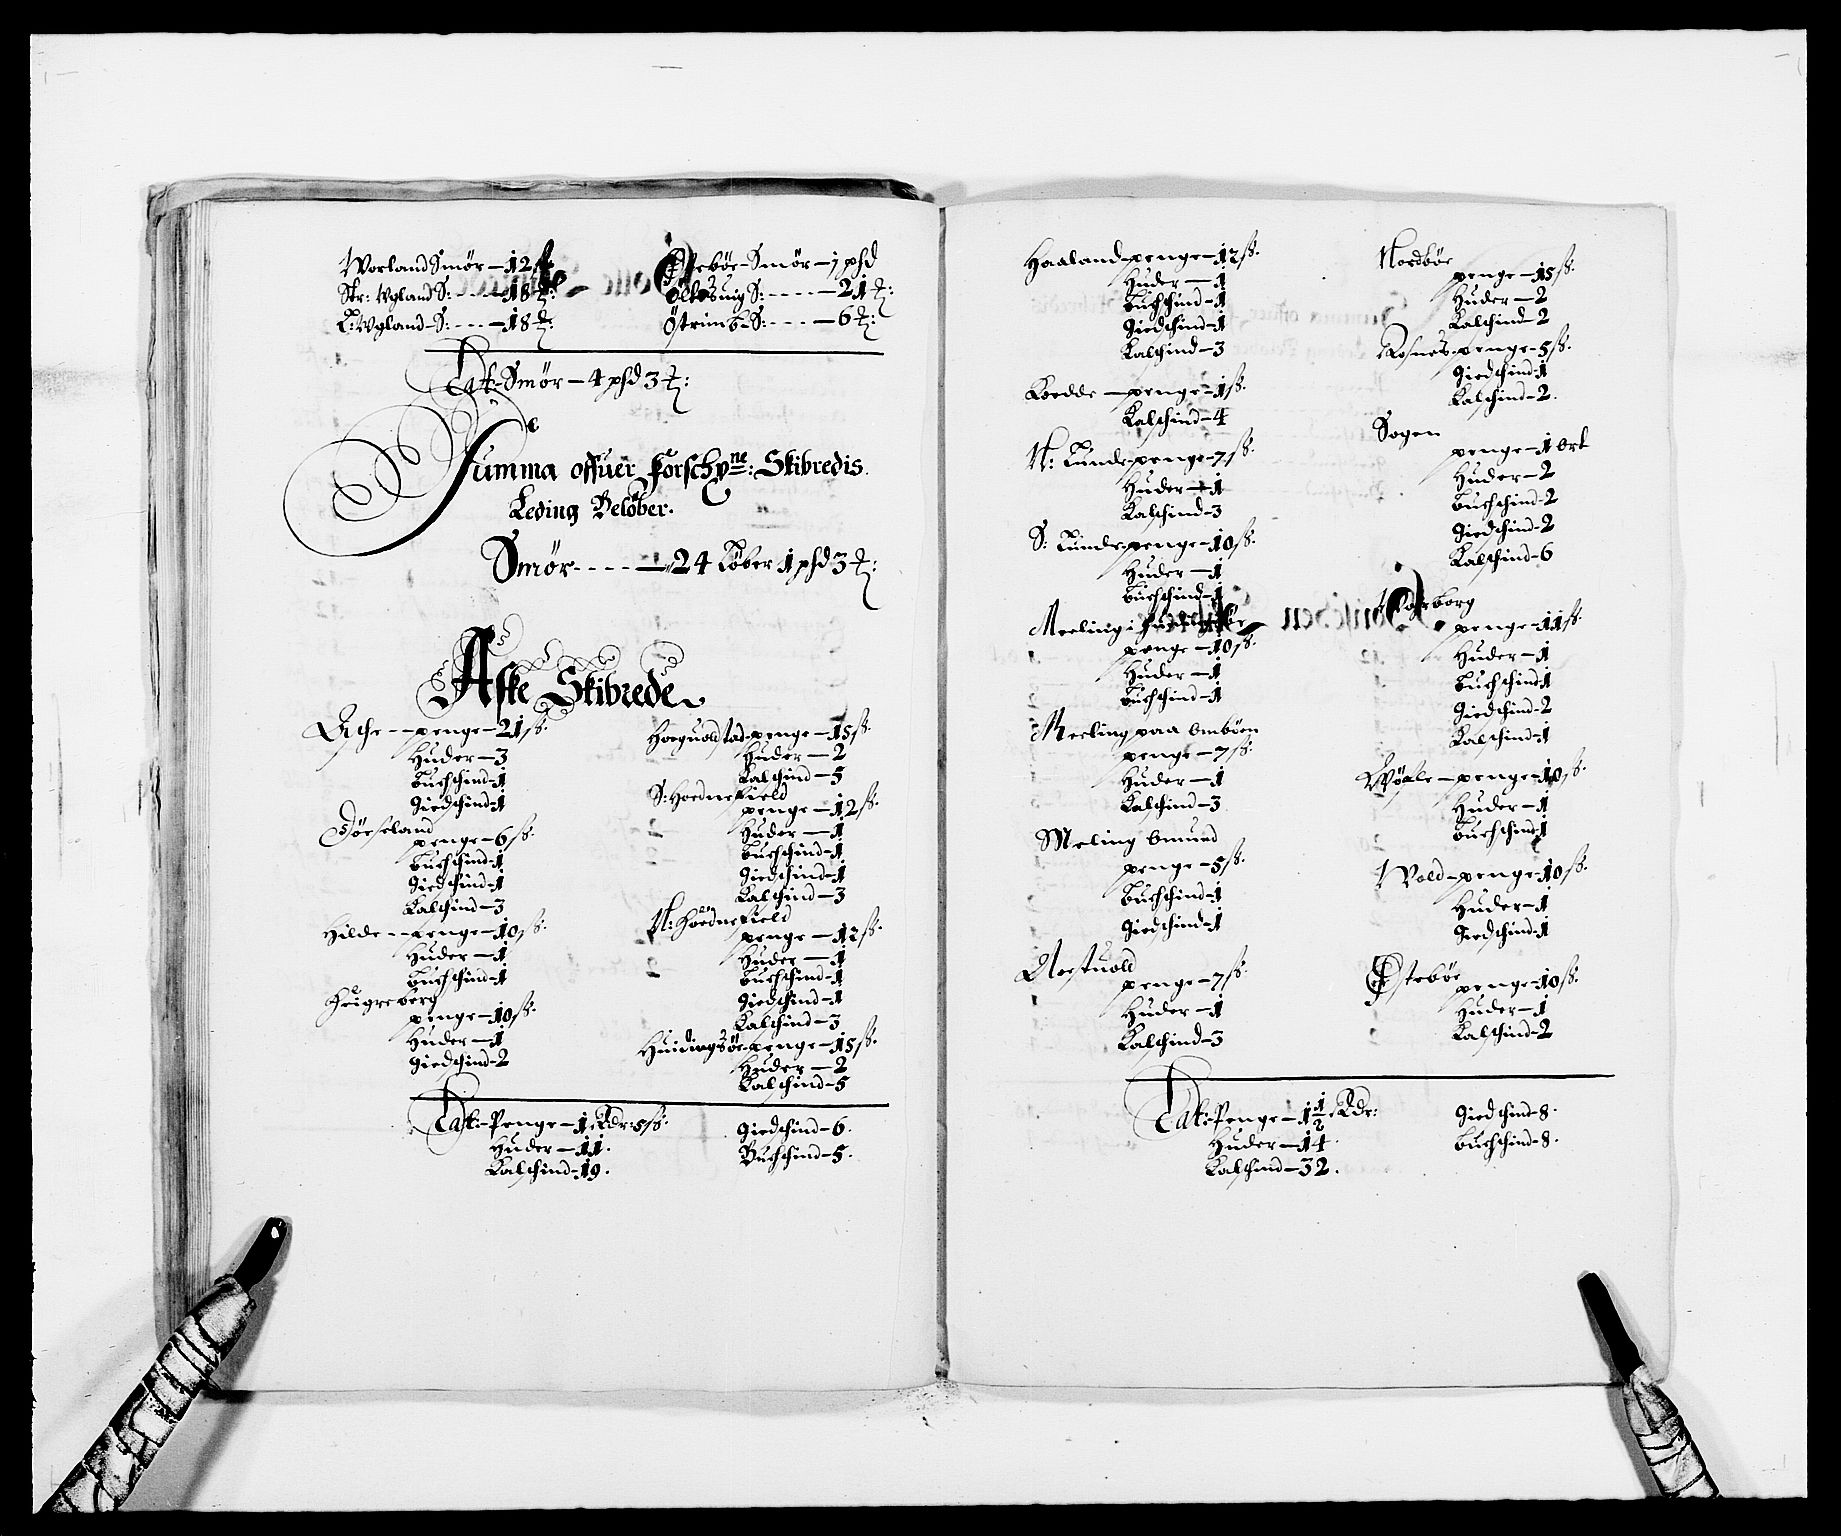 Worland Smör — 12 ℔:
Str: Wgland S: - - - - 18 ℔:
L: Wgland - S: - - - 18 ℔:
Östeböe - Smör — 1 phd
Öltesuig S: - - - - 21 ℔:
Östrimb - S: - - - - 6 ℔:
Lat: Smör — 4 phd 3 ℔:
Summa offuer forschne: Skibredis
Leding Belöber.
Smör - - - - — 24 Löber 1 phd 3 ℔:
Aske Skibrede
Asche - - penge — 21 ß:
Huder — 3
Buchschind - 1
Giedschind - 1
Döeseland
penge — 6 ß:
Buchschind - 1
Giedschind - 1
Kalschind — 3
Hilde - - penge — 10 ß:
Huder — 1
Buchschind - 1
Heigreberg
penge — 10 ß:
Huder — 1
Giedschind - 2
Hoeguoldstad - penge — 15 ß:
Huder — 2
Kalschind — 5
S: Hoednefield
penge — 12 ß:
Huder — 1
Buchschind - 1
Giedschind - 1
Kalschind — 3
N: Hoednefield
penge — 12 ß:
Huder — 1
Buchschind - 1
Giedschind - 1
Kalschind — 3
Huidingsöe - penge — 15 ß:
Huder — 2
Kalschind — 5
Lat: Penge — 1 Rdr: 5 ß:
Huder — 11.
Kalschind - 19.
Giedschind - 6.
Buchschind - 5.
Haaland - penge — 12 ß:
Huder — 1
Buchschind - 1
Giedschind - 1
Kalschind — 3
Koedde — penge — 1 ß:
Kalschind — 4
N: Lunde - penge — 7 ß:
Huder — 1
Kalschind — 3
S: Lunde - penge — 10 ß:
Huder — 1
Buchschind - 1
Meeling i
penge — 10 ß:
Huder — 1
Buchschind - 1
Meeling paa Omböen
penge — 7 ß:
Huder — 1
Kalschind — 3
Meling Omund
penge — 5 ß:
Buchschind - 1
Giedschind - 1
Noestuold
penge — 7 ß:
Huder — 1
Kalschind — 3
Nordböe
penge — 15 ß:
Huder — 2
Kalschind — 2
Rosnes - penge — 5 ß:
Giedschind - 1
Kalschind — 2.
Sogen
penge — 1 ort
Huder — 2
Buchschind - 2
Giedschind - 2
Kalschind — 6
penge — 11 ß:
Huder — 1
Buchschind - 1
Giedschind - 2
Kalschind - 1
penge — 10 ß:
Huder — 1
Buchschind - 1
Wold - penge — 10 ß:
Huder — 1
Giedschind - 1
Östeböe
penge — 10 ß:
Huder — 1
Kalschind — 2
Lat: Penge — 1 1/2 Rdr:
Huder — 14.
Kalschind — 32.
Giedschind - 8.
Buchschind - 8.